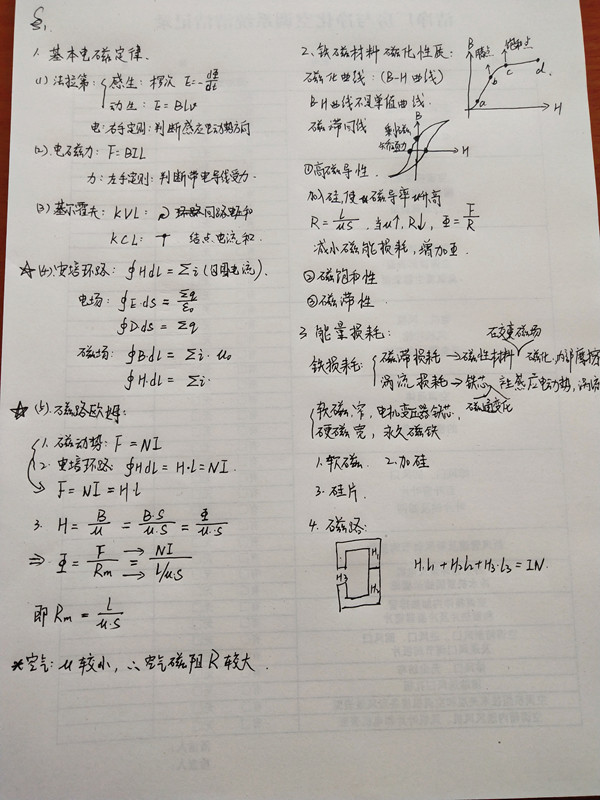 §1.
1. 基本电磁定律.
(1) 法拉第: 感生: 楞次 E=-dΦ/dt
动生: E=BLv
电: 右手定则: 判断感应电动势方向
(2). 电磁力: F=BIL
力: 左手定则: 判断带电导线受力.
(3) 基尔霍夫: KVL: 环路回路电压和
KCL: 结点电流和.
☆(4). 安培环路: ∮HdL = Σi (回围电流).
电场: ∮E·ds = Σq/ε₀
∮Dds = Σq
磁场: ∮BdL = Σi·μ₀
∮H·dL = Σi.
☆(5). 磁路欧姆:
1. 磁动势: F=NI
2. 安培环路: ∮HdL = H·L=NI.
→ F=NI=H·L
3. H = B/μ = B·S/μ·S = Φ/μ·S
⇒ Φ = F/Rm → NI → L/μ·S
即 Rm = L/μ·S
*空气: μ较小, ∴空气磁阻R较大.
2. 铁磁材料磁化性质:
磁化曲线: (B-H曲线)
B-H曲线不是单值曲线.
磁滞回线
B
膝点
饱和点
a
b
c
d
H
剩磁
矫顽力
B
H
①高磁导性.
加入硅, 使μ磁导率μ升高
R = L/μS. 当μ↑, R↓, Φ = F/R
减小磁能损耗, 增加Φ.
②磁饱和性
③磁滞性.
3. 能量损耗:
在交变磁场
铁损耗: 磁滞损耗 → 磁性材料 磁化, 内部摩擦
涡流损耗 → 铁芯 产生感应电动势, 涡流
磁通变化
软磁: 窄, 电机变压器铁芯.
硬磁: 宽, 永久磁铁
1. 软磁. 2. 加硅
3. 硅片.
4. 磁路:
H₁
H₃
H₂
H₁L₁+H₂L₂+H₃·L₃=IN.